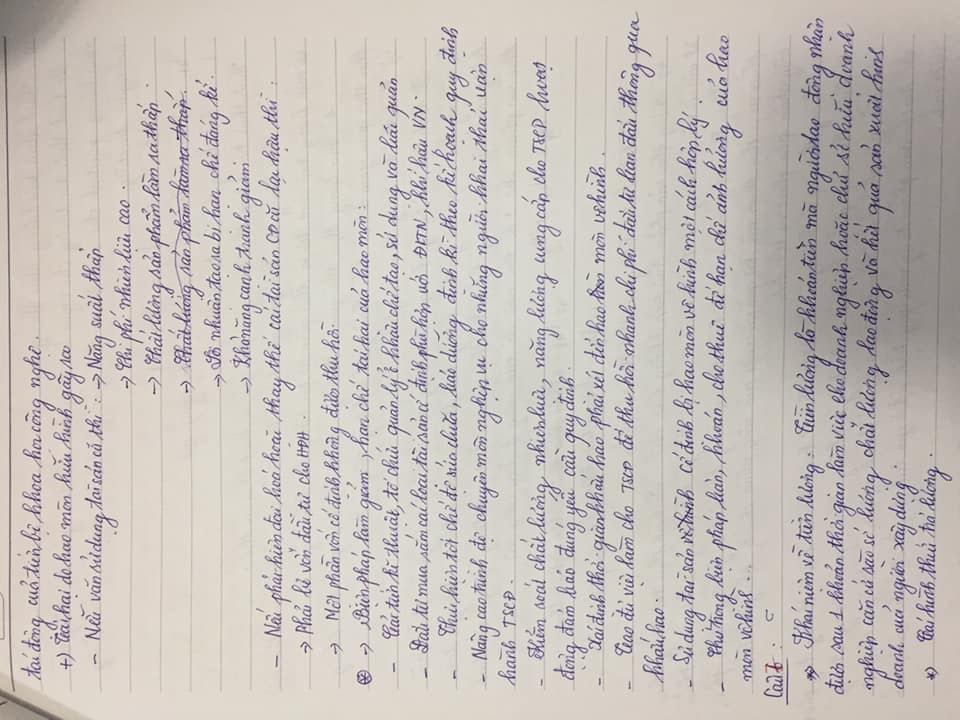 tác động của tiến bộ khoa học công nghệ.
+) Tác hại do hao mòn hữu hình gây ra
- Nếu vẫn sử dụng tài sản cũ thì: → Năng suất thấp
→ Chi phí nhiên liệu cao.
→ Chất lượng sản phẩm làm ra thấp.
→ Chất lượng sản phẩm làm ra thấp.
→ Lợi nhuận tạo ra bị hạn chế đáng kể.
→ Khả năng cạnh tranh giảm
- Nếu phát hiện đổi hoặc thay thế cái tài sản CĐ cũ lạc hậu thì:
→ Phải bỏ vốn đầu tư cho HĐH
→ Một phần vốn cố định không được thu hồi.
⊛ → Biện pháp làm giảm, hạn chế tác hại của hao mòn:
- Cải tiến kĩ thuật, tổ chức quản lý ở khâu chế tạo, sử dụng và bảo quản
- Đầu tư mua sắm các loại tài sản cố định phù hợp với ĐKTN, khí hậu VN
- Thực hiện tốt chế độ sửa chữa, bảo dưỡng định kì theo kế hoạch quy định
- Nâng cao trình độ chuyên môn nghiệp vụ cho những người khai thác vận
hành TSCĐ.
- Kiểm soát chất lượng nhiên liệu, năng lượng cung cấp cho TSCĐ hoạt
động đảm bảo đúng yêu cầu quy định.
- Xác định thời gian khấu hao phải xét đến hao mòn vô hình
- Tạo đủ việc làm cho TSCĐ để thu hồi nhanh chi phí đầu tư ban đầu thông qua
khấu hao.
- Sử dụng tài sản cố định bị hao mòn vô hình một cách hợp lý.
- Chú trọng biện pháp bán, khoán, cho thuê để hạn chế ảnh hưởng của hao
mòn vô hình.
Câu 6:
* Khái niệm về tiền lương: Tiền lương là khoản tiền mà người lao động nhận
được sau 1 khoản thời gian làm việc cho doanh nghiệp hoặc chủ sở hữu doanh
nghiệp căn cứ vào số lượng chất lượng lao động và kết quả sản xuất kinh
doanh của ngành xây dựng.
*) Các hình thức trả lương.